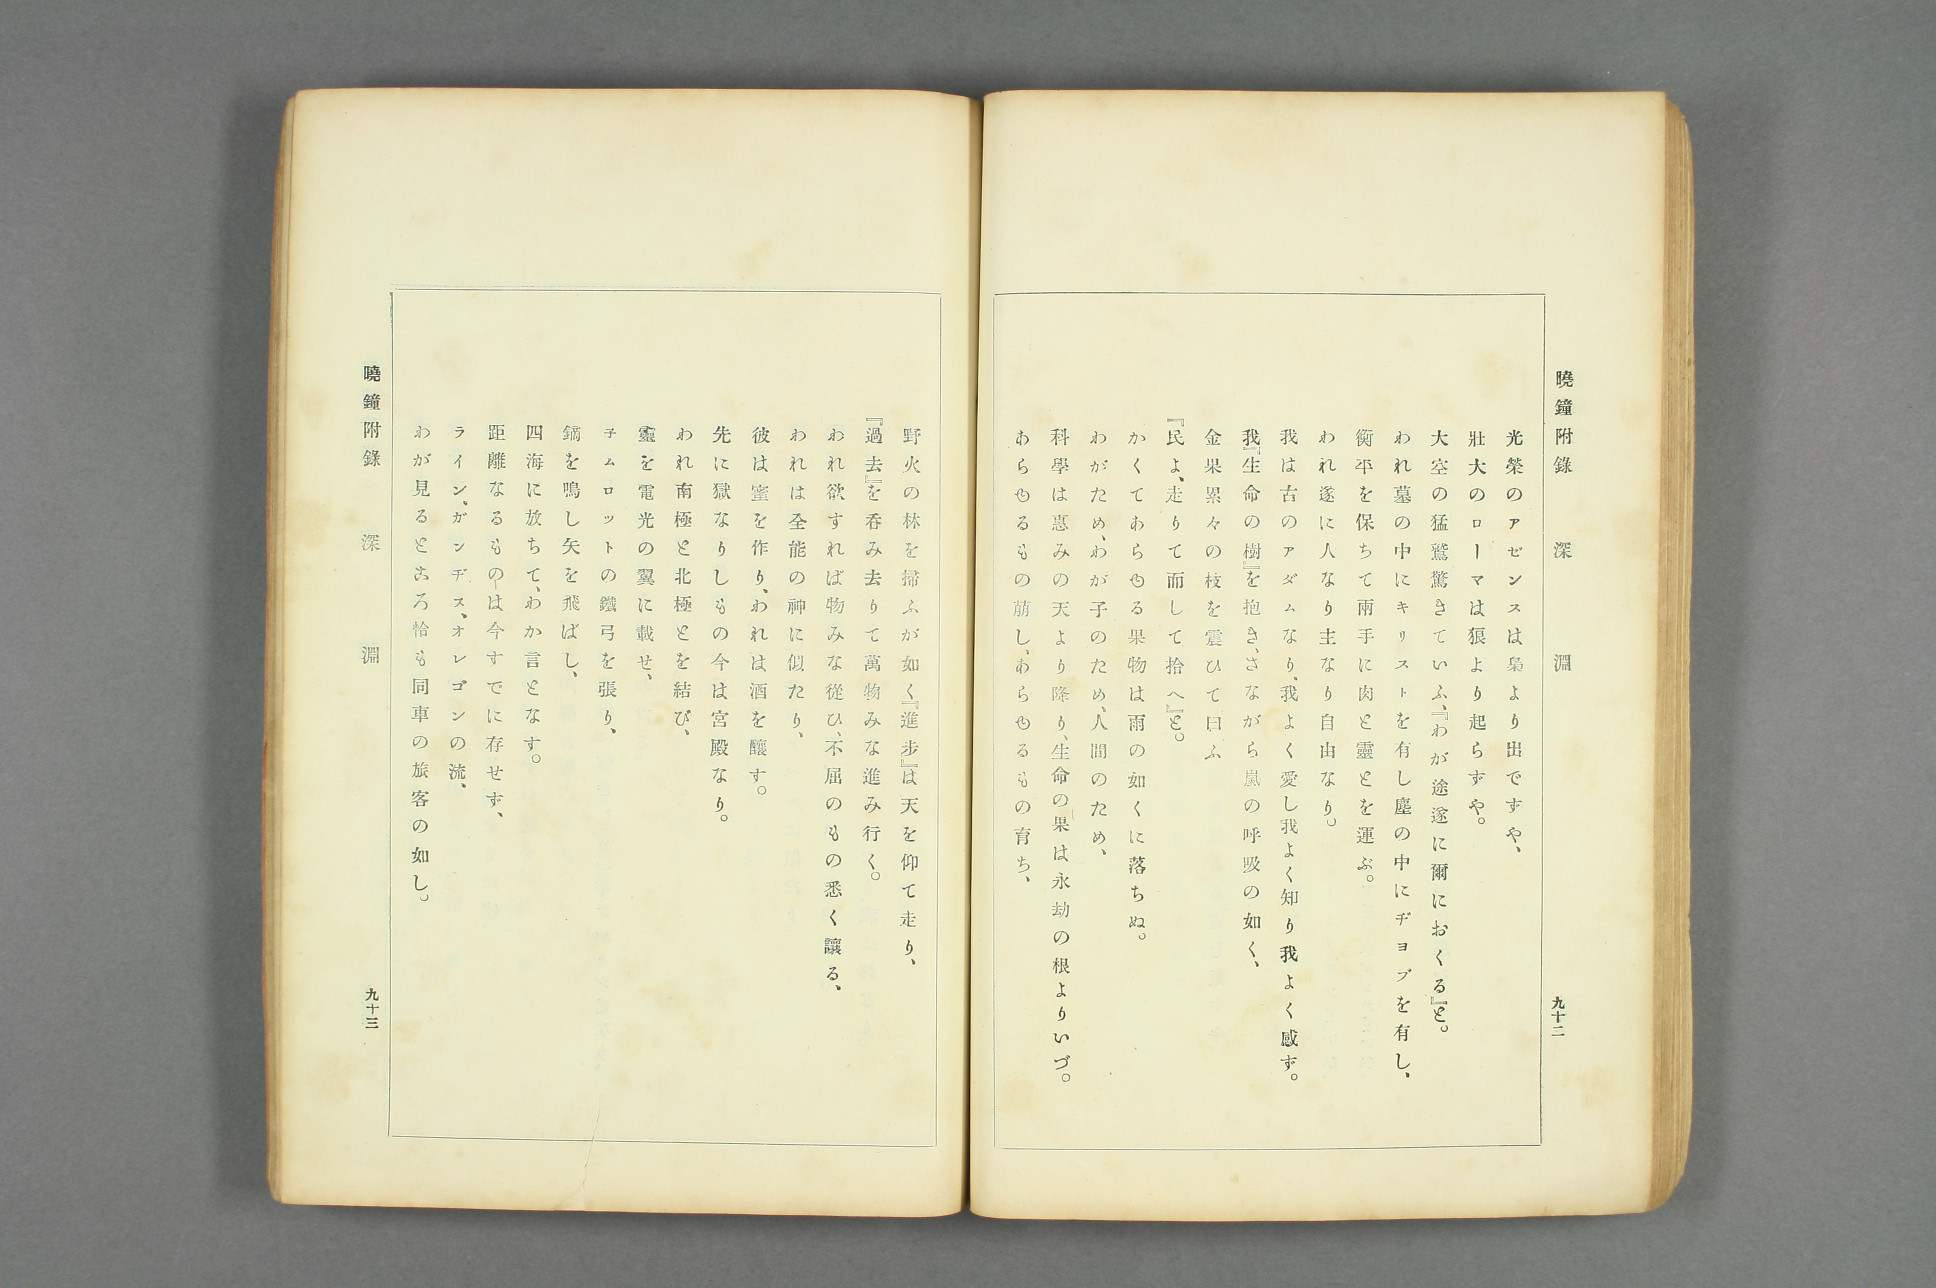 曉鐘附錄　深淵　九十二
光榮のアゼンスは梟より出でずや、
壯大のローマは狼より起らずや。
大空の猛鷲驚きていふ、『わが途遂に爾におくる』と。
われ墓の中にキリストを有し塵の中にヂヨブを有し、
衡平を保ちて兩手に肉と靈とを運ぶ。
われ遂に人なり主なり自由なり。
我は古のアダムなり、我よく愛し我よく知り我よく感ず。
我『生命の樹』を抱き、さながら嵐の呼吸の如く、
金果累々の枝を震ひて曰ふ
『民よ、走りて而して拾へ』と。
かくてあらゆる果物は雨の如くに落ちぬ。
わがため、わが子のため、人間のため、
科學は惠みの天より降り、生命の果は永劫の根よりいづ。
あらゆるもの萠し、あらゆるもの育ち、
野火の林を掃ふが如く『進步』は天を仰て走り、
『過去』を呑み去りて萬物みな進み行く。
われ欲すれば物みな從ひ、不屈のもの悉く讓る、
われは全能の神に似たり、
彼は蜜を作り、われは酒を釀す。
先に獄なりしもの今は宮殿なり。
われ南極と北極とを結び、
靈を電光の翼に載せ、
子ムロットの鐵弓を張り、
鏑を鳴し矢を飛ばし、
四海に放ちて、わか言となす。
距離なるものは今すでに存せず、
ライン、ガンヂス、オレゴンの流、
わが見るところ恰も同車の旅客の如し。
曉鐘附錄　深淵　九十三